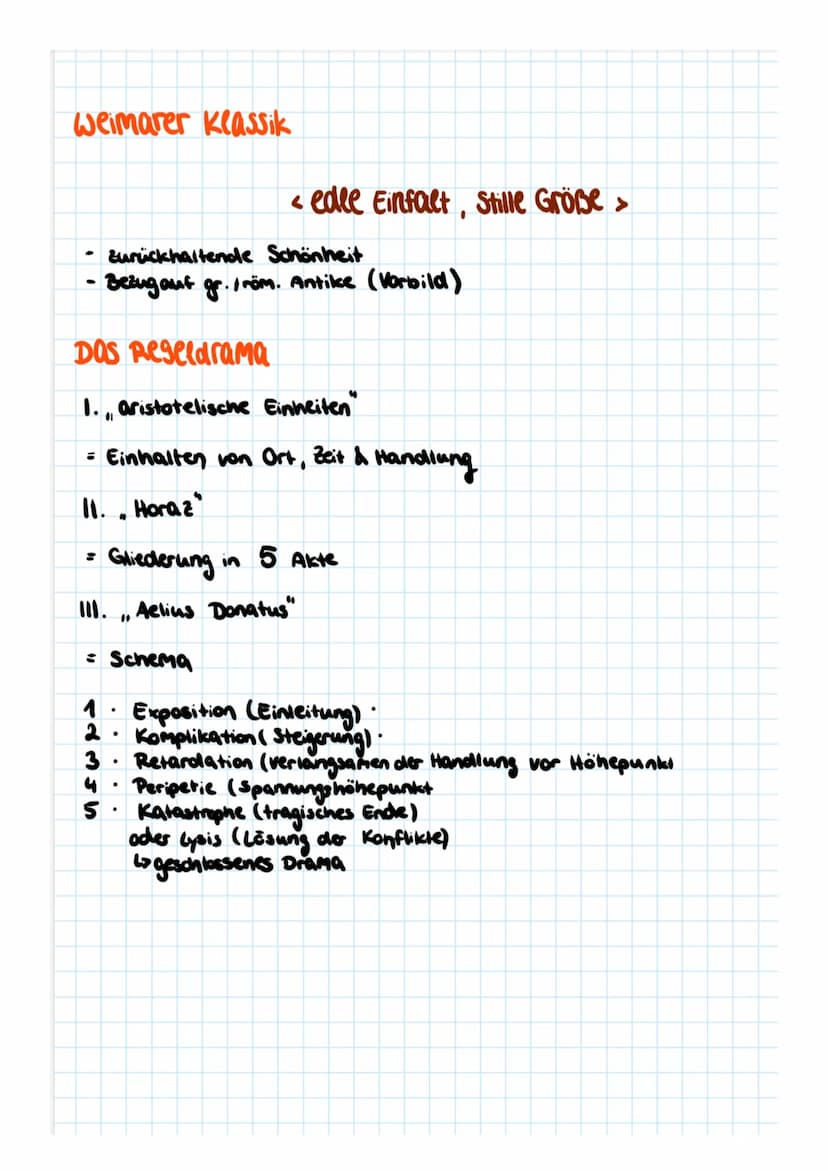 Weimarer Klassik
< edle Einfalt, Stille Größe >
- zurückhaltende Schönheit
- Bezug auf gr. / röm. Antike (Vorbild)
Das Regeldrama
I. „aristotelische Einheiten"
= Einhalten von Ort, Zeit & Handlung
II. „Horaz"
= Gliederung in 5 Akte
III. „Aelius Donatus"
= Schema
1. Exposition (Einleitung).
2. Komplikation (Steigerung).
3. Retardation (verlangsamen der Handlung vor Höhepunkt
4. Peripetie (Spannungshöhepunkt
5. Katastrophe (tragisches Ende)
oder Lysis (Lösung der Konflikte)
↳ geschlossenes Drama